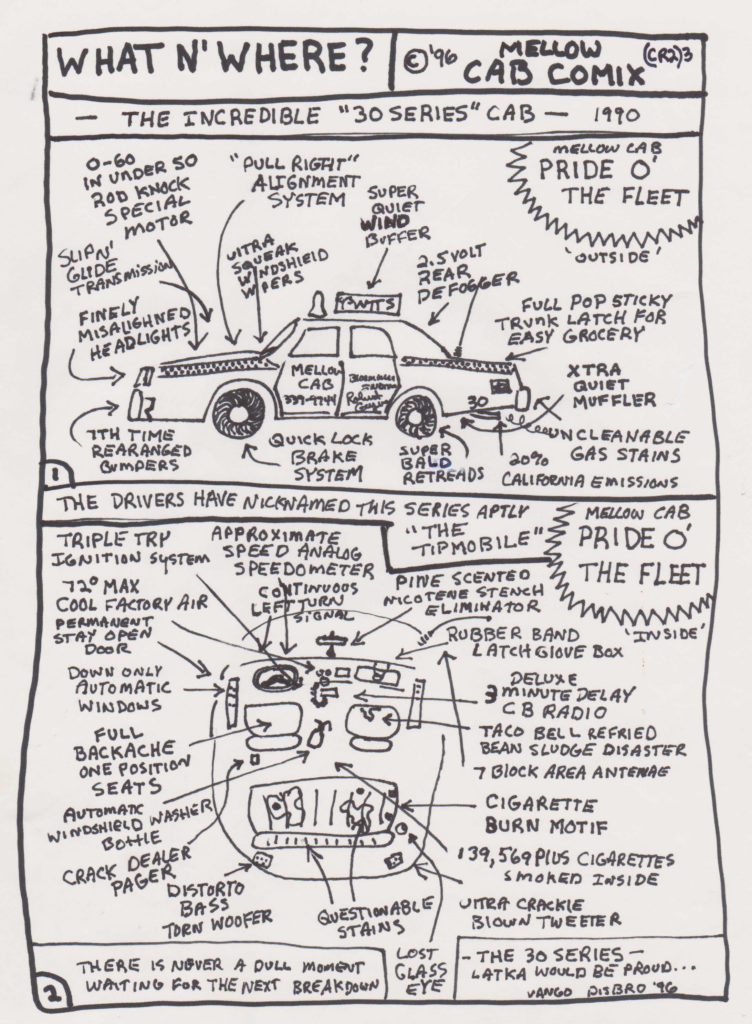 WHAT N' WHERE?
©'96 MELLOW (CR2)3
CAB COMIX
— THE INCREDIBLE "30 SERIES" CAB — 1990
0-60
IN UNDER 50
ROD KNOCK
SPECIAL
MOTOR
"PULL RIGHT"
ALIGNMENT
SYSTEM
SUPER
QUIET
WIND
BUFFER
MELLOW CAB
PRIDE O'
THE FLEET
'OUTSIDE'
SLIP N'
GLIDE
TRANSMISSION
ULTRA
SQUEAK
WINDSHIELD
WIPERS
2.5 VOLT
REAR
DEFOGGER
FINELY
MISALIGHNED
HEADLIGHTS
FULL POP STICKY
TRUNK LATCH FOR
EASY GROCERY
MELLOW
CAB
30
XTRA
QUIET
MUFFLER
7TH TIME
REARANGED
BUMPERS
QUICK LOCK
BRAKE
SYSTEM
SUPER
BALD
RETREADS
20%
CALIFORNIA EMISSIONS
UNCLEANABLE
GAS STAINS
1
THE DRIVERS HAVE NICKNAMED THIS SERIES APTLY
"THE
TIPMOBILE"
MELLOW CAB
PRIDE O'
THE FLEET
'INSIDE'
TRIPLE TRY
IGNITION SYSTEM
APPROXIMATE
SPEED ANALOG
SPEEDOMETER
CONTINUOUS
LEFT TURN
SIGNAL
PINE SCENTED
NICOTENE STENCH
ELIMINATOR
72° MAX
COOL FACTORY AIR
PERMANENT
STAY OPEN
DOOR
RUBBER BAND
LATCH GLOVE BOX
DOWN ONLY
AUTOMATIC
WINDOWS
DELUXE
3 MINUTE DELAY
CB RADIO
FULL
BACKACHE
ONE POSITION
SEATS
TACO BELL REFRIED
BEAN SLUDGE DISASTER
7 BLOCK AREA ANTENAE
AUTOMATIC
WINDSHIELD WASHER
BOTTLE
CIGARETTE
BURN MOTIF
CRACK DEALER
PAGER
139,569 PLUS CIGARETTES
SMOKED INSIDE
DISTORTO
BASS
TORN WOOFER
QUESTIONABLE
STAINS
ULTRA CRACKLE
BLOWN TWEETER
LOST
GLASS
EYE
2
THERE IS NEVER A DULL MOMENT
WAITING FOR THE NEXT BREAKDOWN
- THE 30 SERIES -
LATKA WOULD BE PROUD...
VANGO DISBRO '96